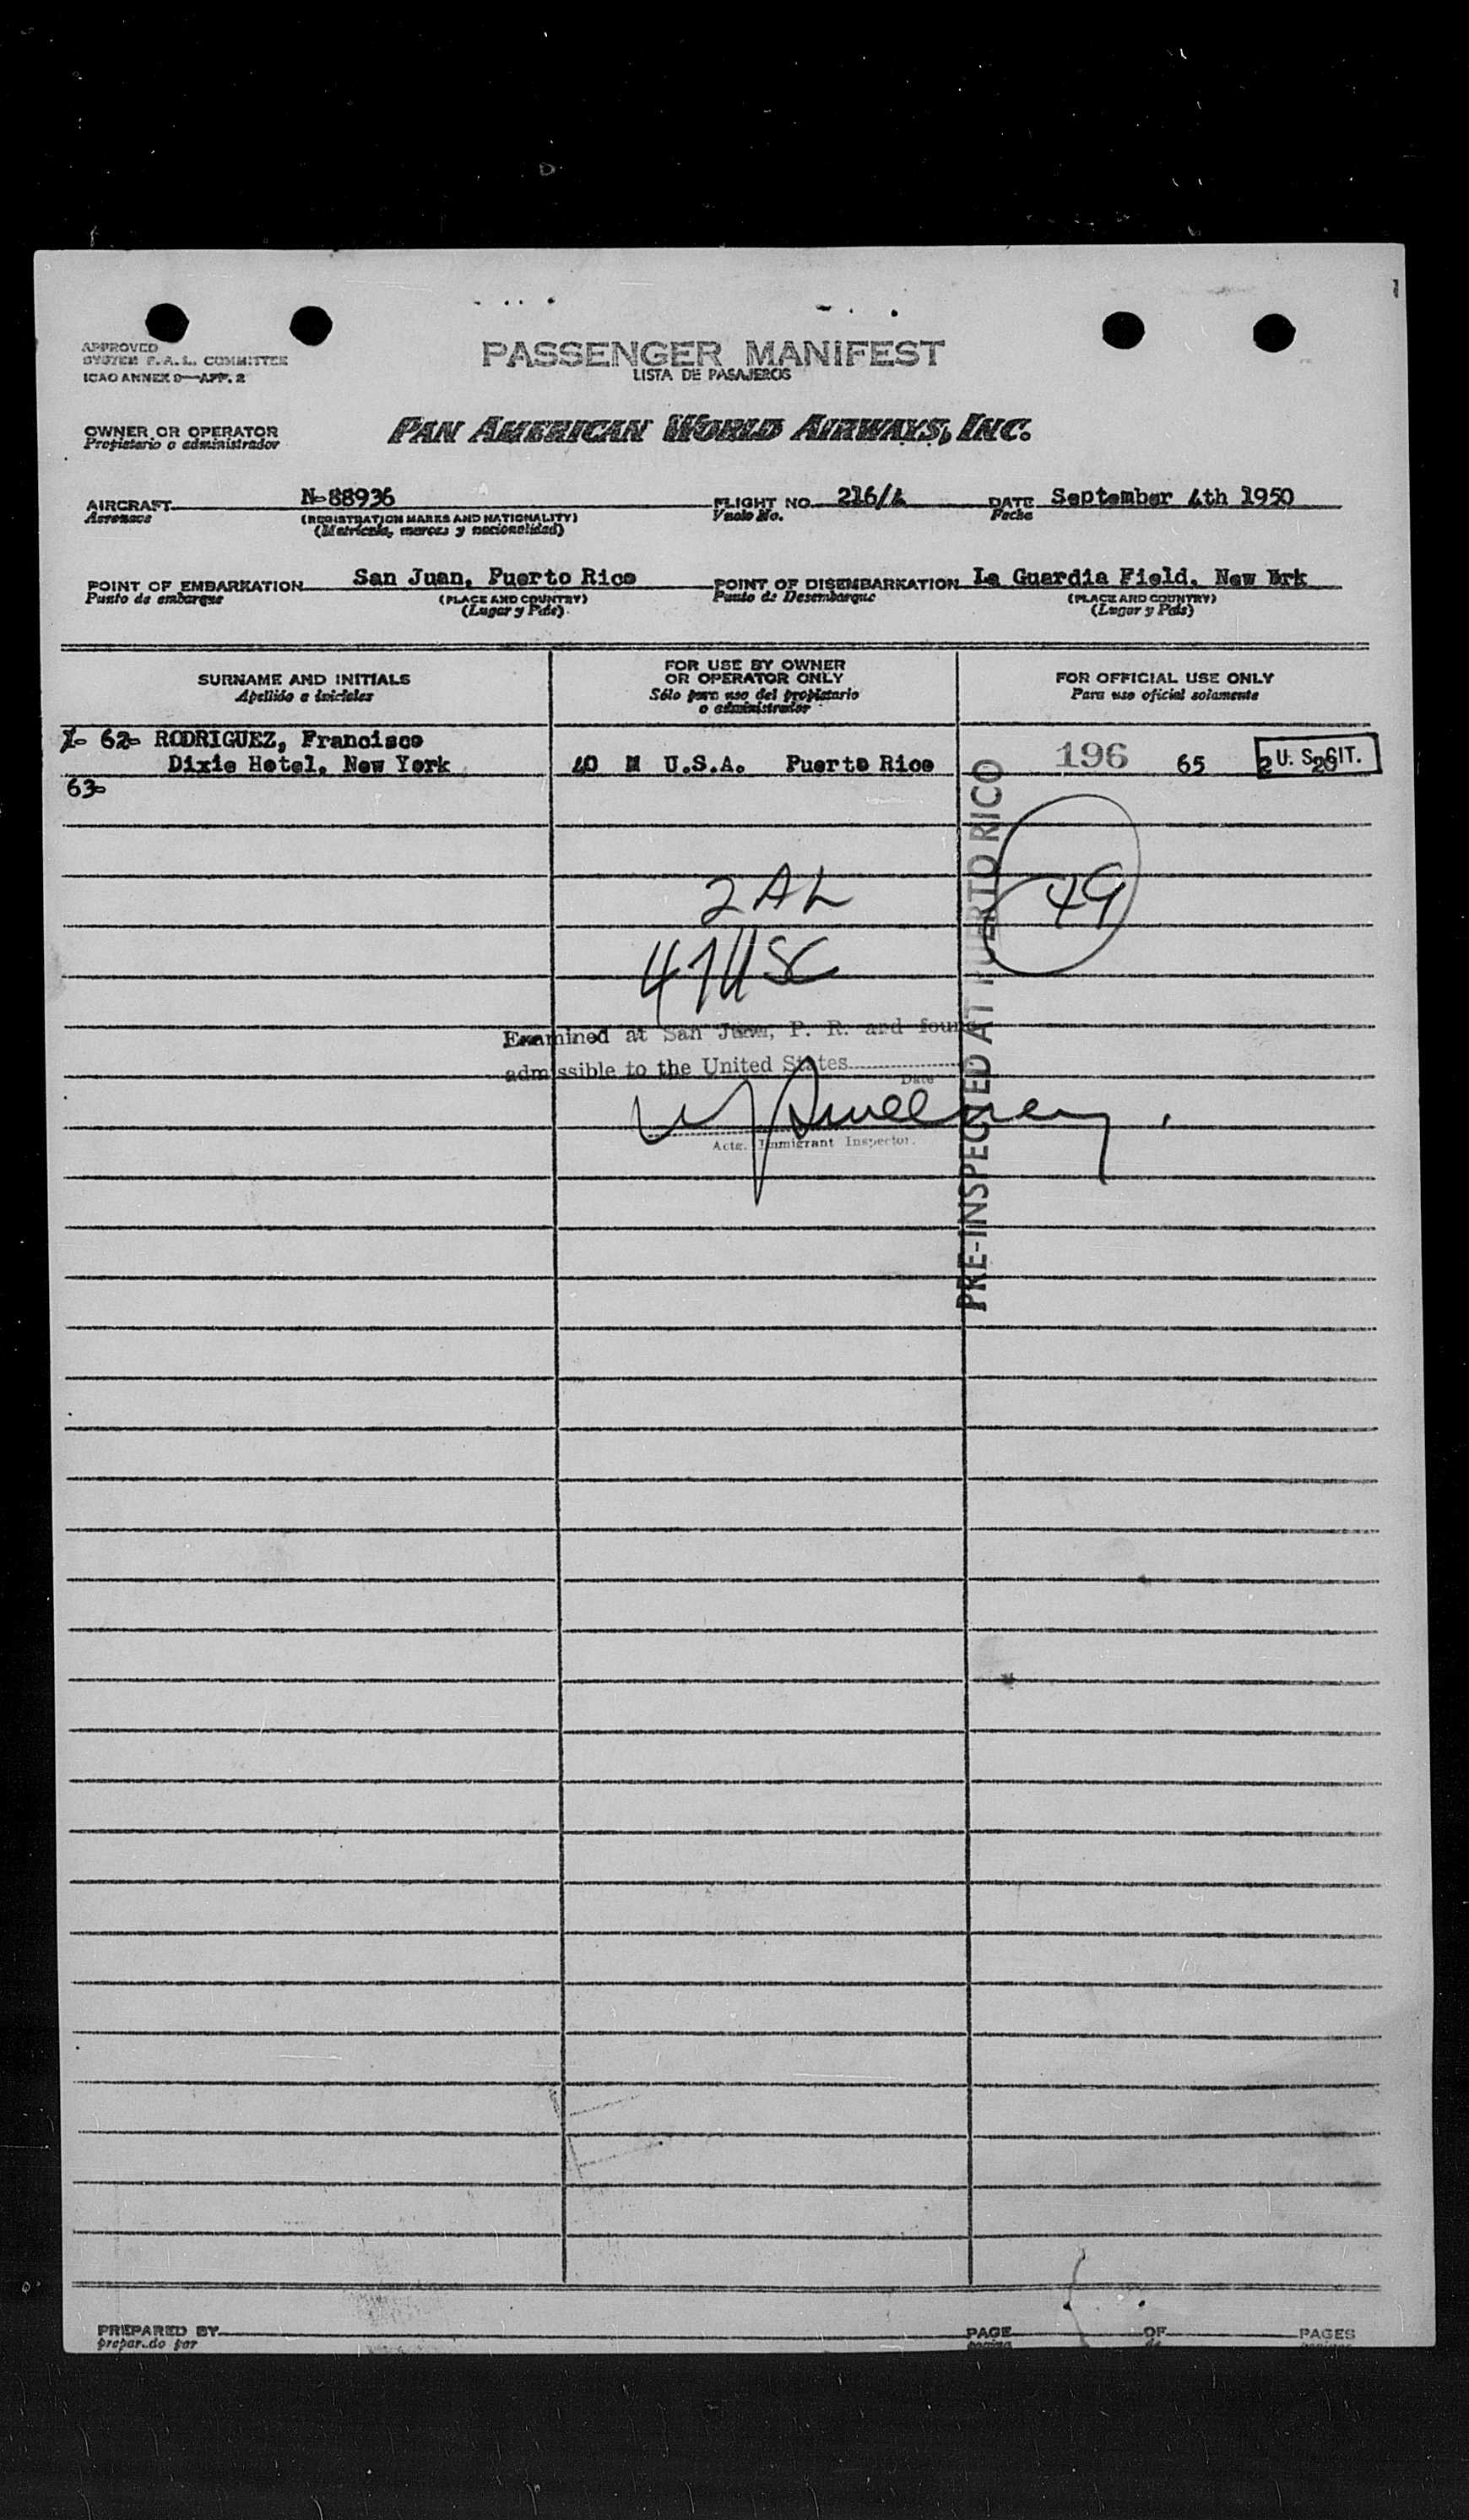 APPROVED
SYSTEM F.A.L. COMMITTEE
ICAO ANNEX 9—APP. 2
PASSENGER MANIFEST
LISTA DE PASAJEROS
OWNER OR OPERATOR
Propietario o administrador
PAN AMERICAN WORLD AIRWAYS, INC.
AIRCRAFT N-88936 FLIGHT NO. 216/4 DATE September 4th 1950
Aeronave (REGISTRATION MARKS AND NATIONALITY) Vuelo No. Fecha
(Matricula, marcas y nacionalidad)
POINT OF EMBARKATION San Juan, Puerto Rico POINT OF DISEMBARKATION La Guardia Field, New Ykrk
Punto de embarque (PLACE AND COUNTRY) Punto de Desembarque (PLACE AND COUNTRY)
(Lugar y País) (Lugar y País)
SURNAME AND INITIALS
Apellido e iniciales
FOR USE BY OWNER
OR OPERATOR ONLY
Sólo para uso del propietario
o administrador
FOR OFFICIAL USE ONLY
Para uso oficial solamente
62- RODRIGUEZ, Francisco
Dixie Hotel, New York 40 M U.S.A. Puerto Rico 196 65 U. S. CIT.
63-
2 AL
49
47 USC
Examined at San Juan, P. R. and found
admissible to the United States
Date
Actg. Immigrant Inspector.
PRE-INSPECTED AT PUERTO RICO
PREPARED BY PAGE OF PAGES
preparado por pagina de paginas